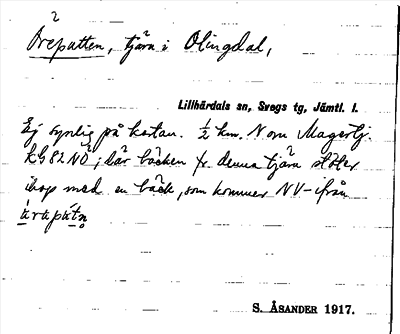 Öreputten, tjärn i Olingdal,
Lillhärdals sn, Svegs tg, Jämtl. l.
Ej synlig på kartan. ½ km. N om
KB 82 NO; där bäcken fr denna tjärn stöter
ihop med en bäck, som kommer NV-ifrån
S. ÅSANDER 1917.